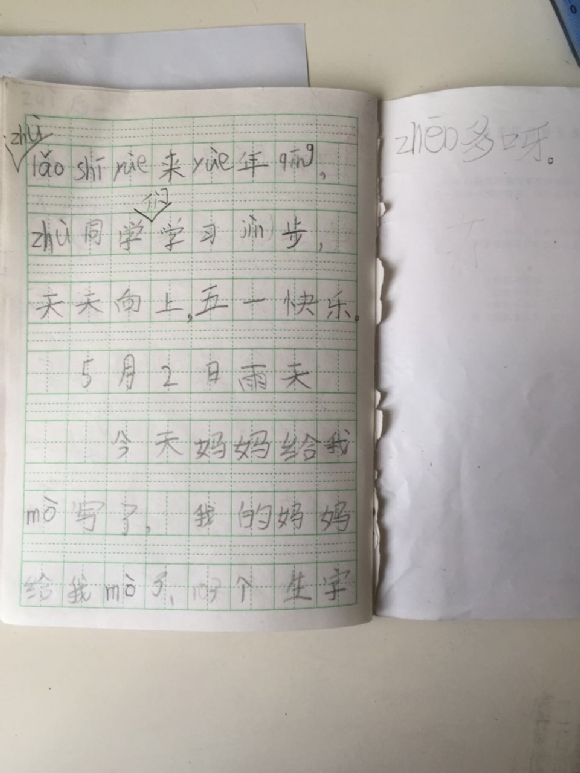 zhù
lǎo shī yuè来yuè年qīng,
们
zhù同学学习jìn步,
天天向上,五一快乐。
5月2日雨天
今天妈妈给我
mò写了,我的妈妈
给我mò了,103个生字
zhēn多呀。